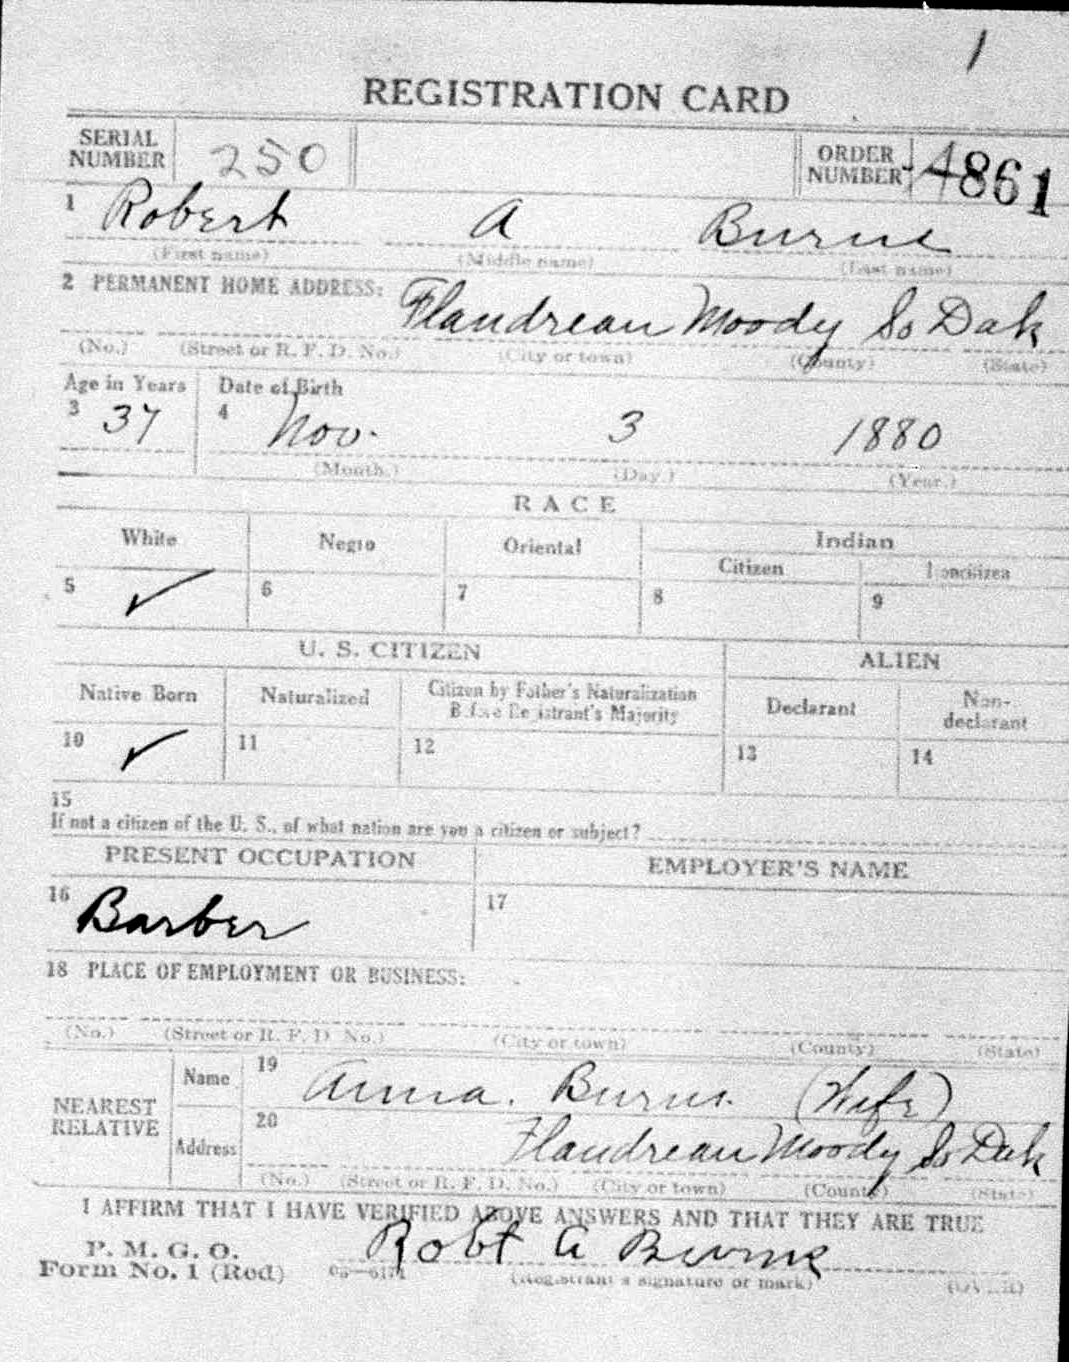 1
REGISTRATION CARD
SERIAL NUMBER 250 ORDER NUMBER 4861
1 Robert A Burns
(First name) (Middle name) (Last name)
2 PERMANENT HOME ADDRESS: Flandreau Moody So Dak
(No.) (Street or R. F. D. No.) (City or town) (County) (State)
Age in Years Date of Birth
3 37 4 Nov. 3 1880
(Month.) (Day.) (Year.)
RACE
White Negro Oriental Indian
Citizen Noncitizen
5 ✓ 6 7 8 9
U. S. CITIZEN ALIEN
Native Born Naturalized Citizen by Father's Naturalization Before Registrant's Majority Declarant Non-declarant
10 ✓ 11 12 13 14
15
If not a citizen of the U. S., of what nation are you a citizen or subject?
PRESENT OCCUPATION EMPLOYER'S NAME
16 Barber 17
18 PLACE OF EMPLOYMENT OR BUSINESS:
(No.) (Street or R. F. D. No.) (City or town) (County) (State)
NEAREST RELATIVE Name 19 Anna. Burns. (Wife)
Address 20 Flandreau Moody So Dak
(No.) (Street or R. F. D. No.) (City or town) (County) (State)
I AFFIRM THAT I HAVE VERIFIED ABOVE ANSWERS AND THAT THEY ARE TRUE
P. M. G. O.
Form No. 1 (Red) 03—6171 Robt A Burns
(Registrant's signature or mark) (OVER)